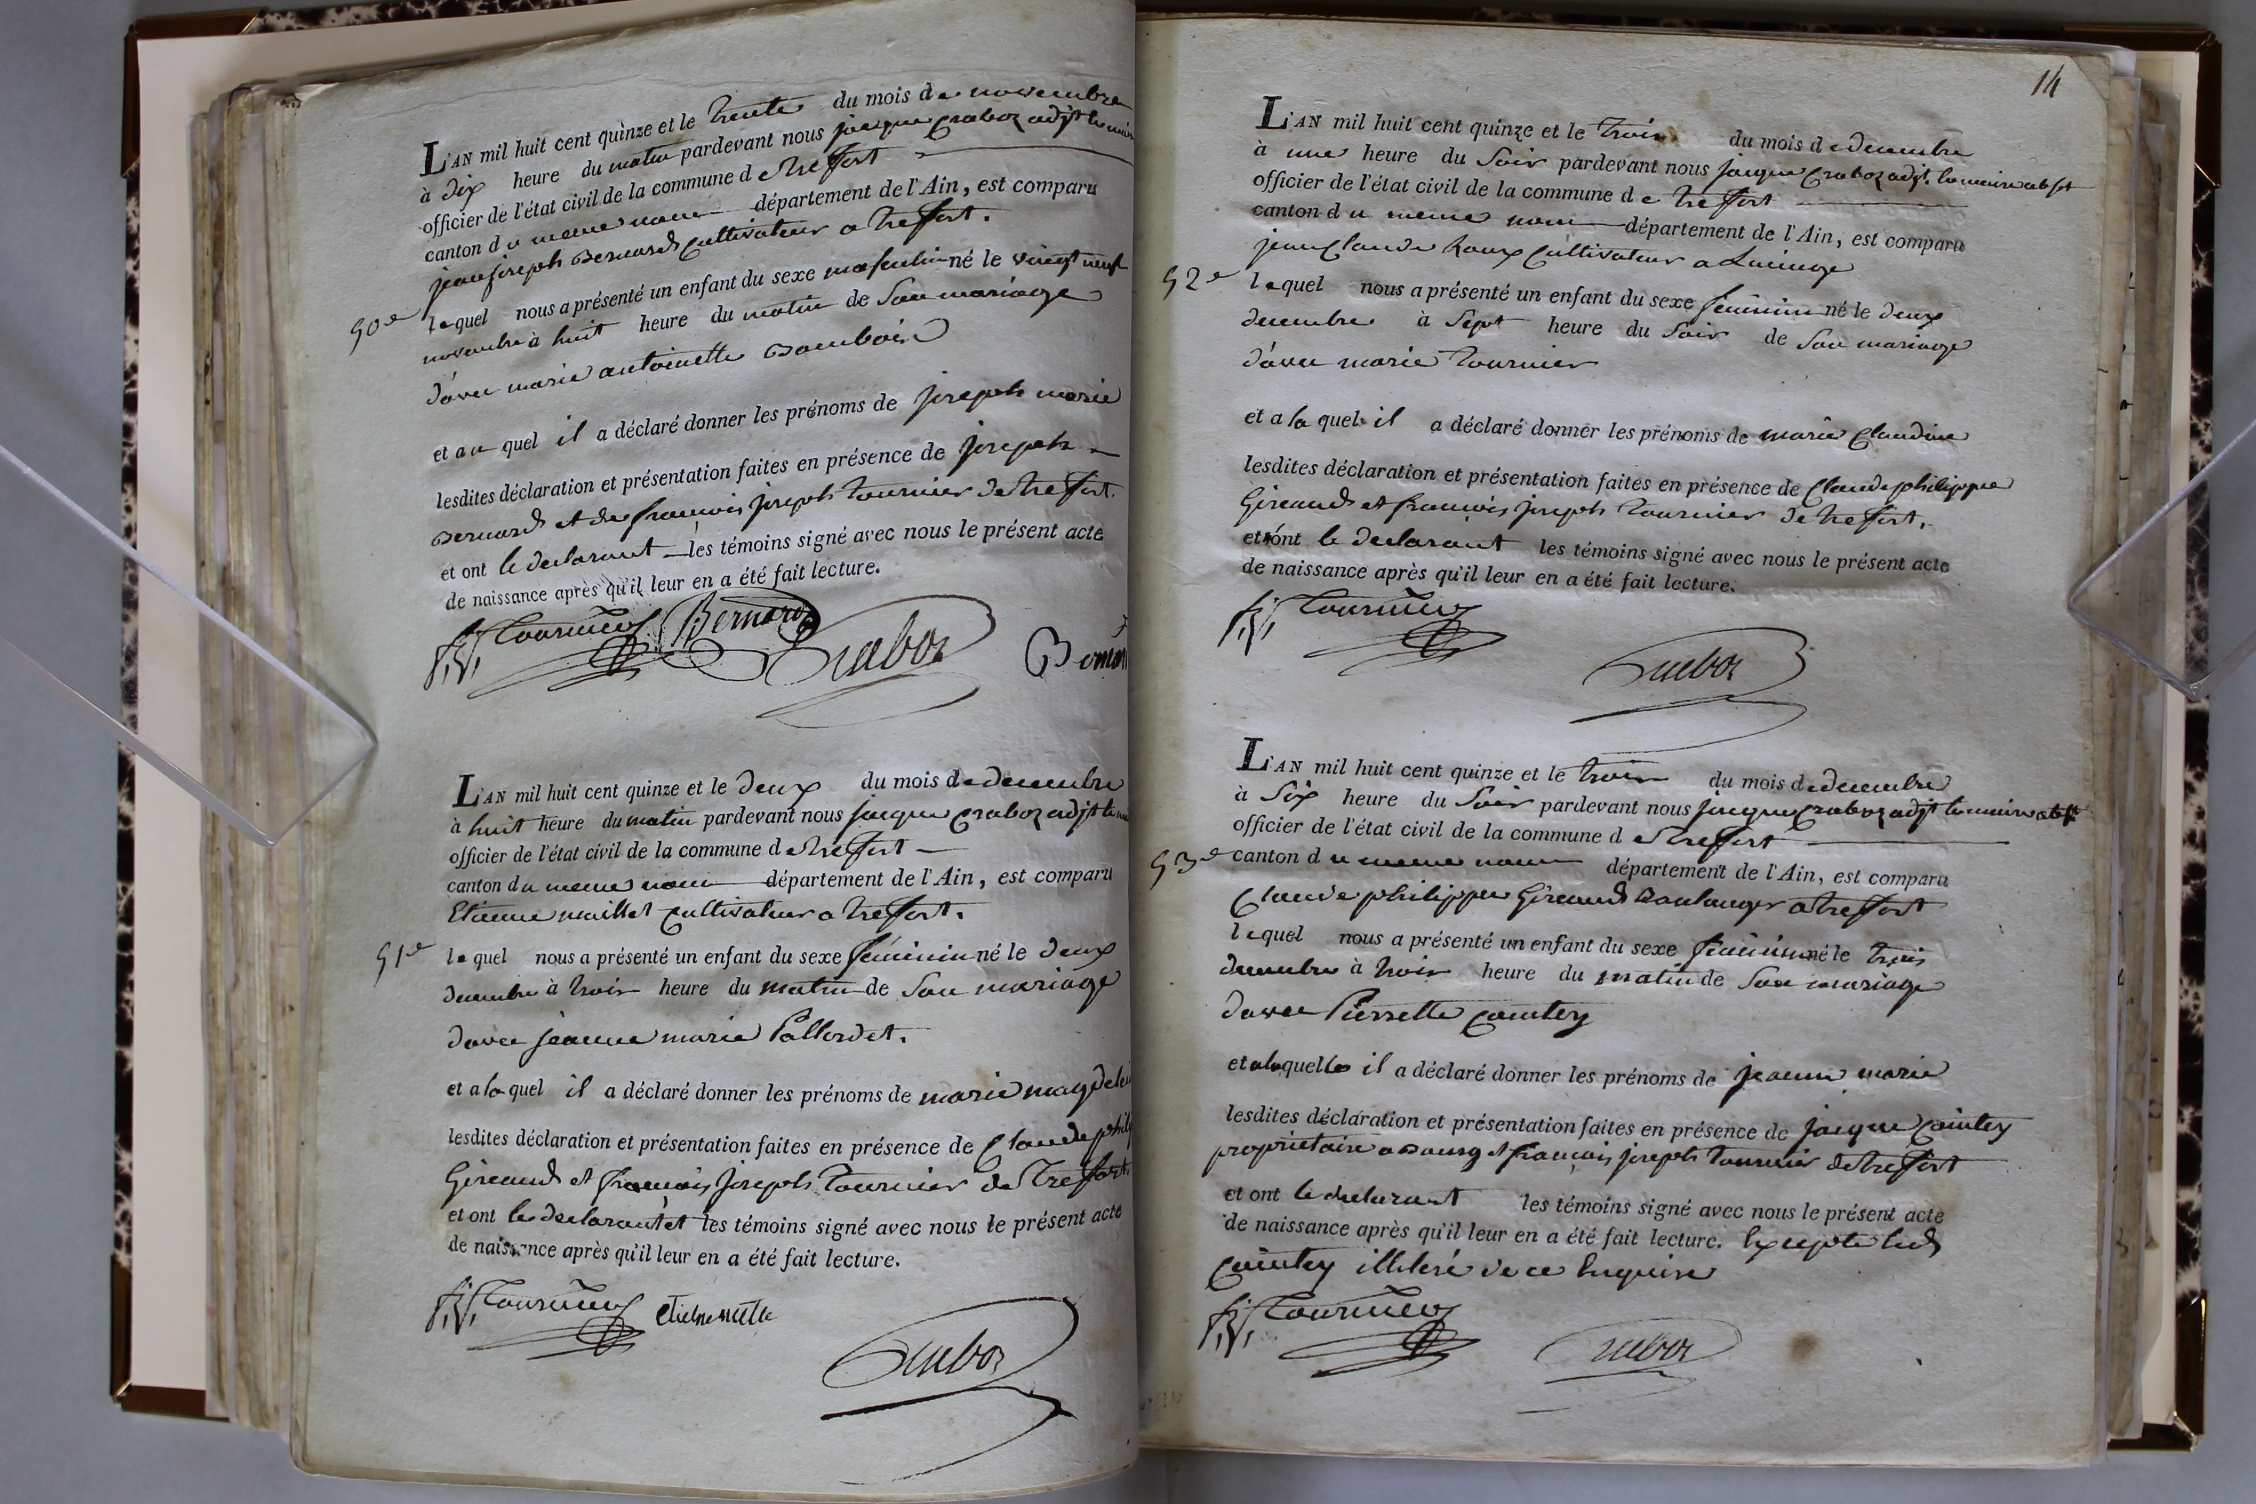 L'AN mil huit cent quinze et le trente du mois de novembre
à dix heure du matin pardevant nous jacque Craboz adjt le maire
officier de l'état civil de la commune de treffort
canton du meme nom département de l'Ain, est comparu
jean joseph Bernard Cultivateur a treffort.
50e
lequel nous a présenté un enfant du sexe masculin né le vingt neuf
novembre à huit heure du matin de son mariage
d'avec marie antoinette
et au quel il a déclaré donner les prénoms de joseph marie
lesdites déclaration et présentation faites en présence de joseph
Bernard et de francois joseph tournier de treffort.
et ont le declarant les témoins signé avec nous le présent acte
de naissance après qu'il leur en a été fait lecture.
f. j. tournier Bernard Craboz
L'AN mil huit cent quinze et le deux du mois de decembre
à huit heure du matin pardevant nous jacque Craboz adjt le
officier de l'état civil de la commune de treffort
canton du meme nom département de l'Ain, est comparu
Etienne maillet cultivateur a treffort.
51e
lequel nous a présenté un enfant du sexe féminin né le deux
decembre à trois heure du matin de son mariage
d'avec jeanne marie Pallordet.
et a la quel il a déclaré donner les prénoms de marie magdel
lesdites déclaration et présentation faites en présence de Claude phili
Gireaud et francois joseph tournier de treffort.
et ont le declarant et les témoins signé avec nous le présent acte
de naissance après qu'il leur en a été fait lecture.
f. j. tournier Craboz
14
L'AN mil huit cent quinze et le trois du mois de decembre
à une heure du soir pardevant nous jacque Craboz adjt. le maire abst
officier de l'état civil de la commune de treffort
canton du meme nom département de l'Ain, est comparu
jean Claude Roux Cultivateur a
52e
lequel nous a présenté un enfant du sexe féminin né le deux
decembre à sept heure du soir de son mariage
d'avec marie tournier
et a la quel il a déclaré donner les prénoms de marie Claudine
lesdites déclaration et présentation faites en présence de Claude philippe
Gireaud et francois joseph tournier de treffort.
et ont le declarant les témoins signé avec nous le présent acte
de naissance après qu'il leur en a été fait lecture.
f. j. tournier
Craboz
L'AN mil huit cent quinze et le trois du mois de decembre
à six heure du soir pardevant nous jacque Craboz adjt le maire abst
officier de l'état civil de la commune de treffort
53e
canton du meme nom département de l'Ain, est comparu
Claude philippe Gireaud Boulanger a treffort
lequel nous a présenté un enfant du sexe féminin né le trois
decembre à trois heure du matin de son mariage
d'avec Pierrette Caintey
et a laquelle il a déclaré donner les prénoms de jeanne marie
lesdites déclaration et présentation faites en présence de jacque Caintey
proprietaire a Bourg et francois joseph tournier de treffort
et ont le declarant les témoins signé avec nous le présent acte
de naissance après qu'il leur en a été fait lecture. Excepté led
Caintey illiteré de ce Enquire
f. j. tournier Craboz